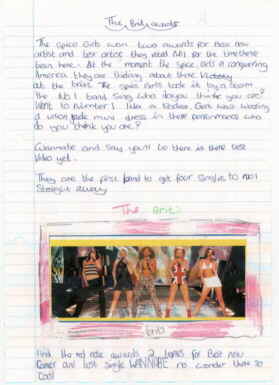 The Brit awards
The Spice Girls won two awards for best new
artist and best artist they stayed No1 for the time there
been here. At the moment the spice girls is conquering
America they are thinking about there Victory
at the brits. The spice Girls took it by a team
the No 1 band. Sang who do you think you are?
Went to number 1. like a Geri was wearing
a union jack mini dress in there performance who
do you think you are?
Wannabe and Say you'll be there is there best
Video yet.
They are the first band to get four Single to no1
Straight away
The Brits
brits
And the red nose awards 2 times for Best new
Comer and best single WANNABE no wonder there so
Cool